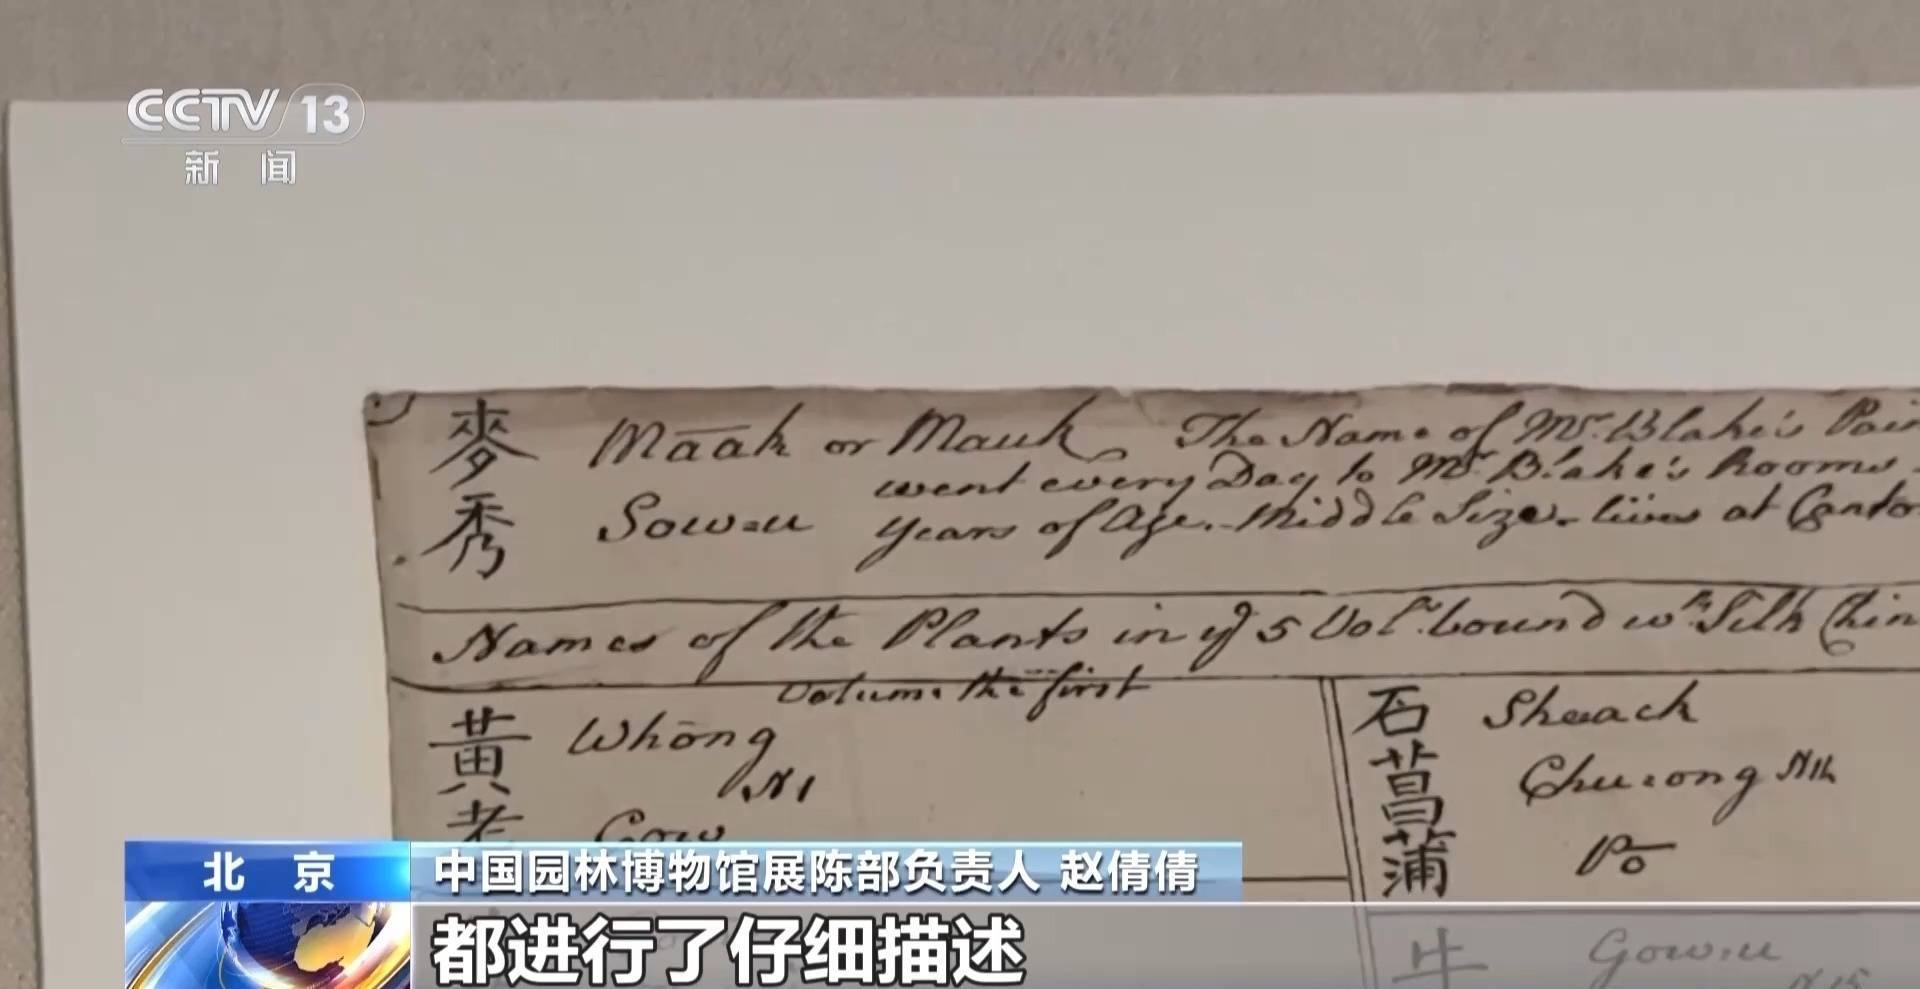 CCTV 13
新闻
麥 Māak or Mauk The Name of Mr. Blake's
went every Day to Mr Blake's Rooms
秀 Sow=u years of Age. Middle Size. lives at
Names of the Plants in ye 5 Vols. bound wth Silk
Volume the first
黃 Whōng
N1
老 Gow
石 Sheack
菖 Chu=ong
蒲 Pō
牛 Gow=u
N15
北京
中国园林博物馆展陈部负责人 赵倩倩
都进行了仔细描述